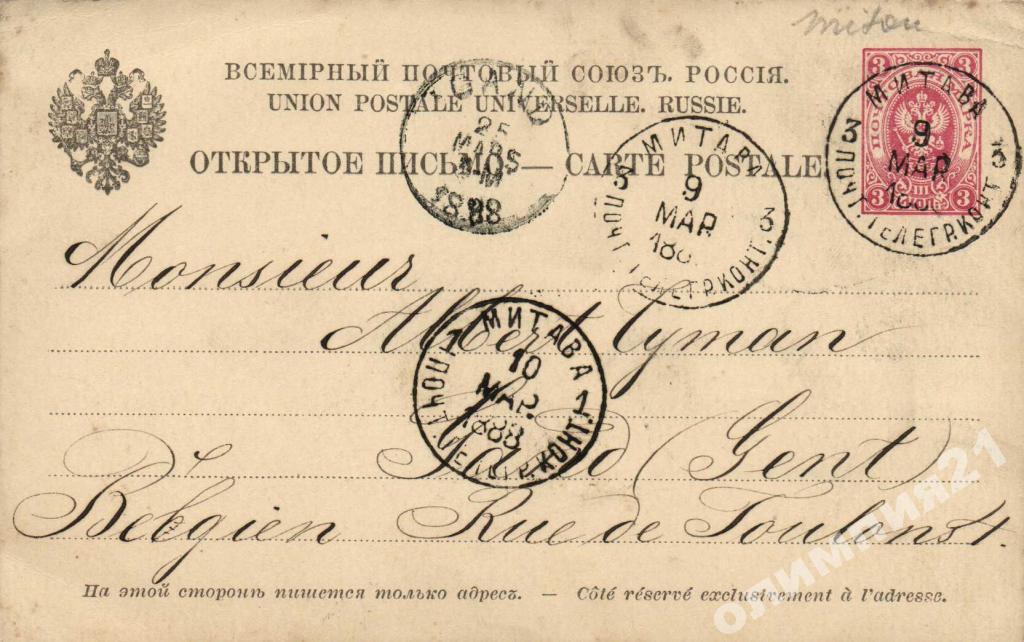 mitau
ВСЕМІРНЫЙ ПОЧТОВЫЙ СОЮЗЪ. РОССІЯ.
UNION POSTALE UNIVERSELLE. RUSSIE.
ОТКРЫТОЕ ПИСЬМО — CARTE POSTALE.
3 3
ПОЧТОВАЯ МАРКА
3 III 3
МИТАВА
3 9 3
МАР.
188
ПОЧТ. ТЕЛЕГР. КОНТ.
GAND
25
MARS
1888
МИТАВА
3 9 3
МАР.
188
ПОЧТ. ТЕЛЕГР. КОНТ.
Monsieur
Albert Cyman
МИТАВА
1 10 1
МАР.
1888
ПОЧТ. ТЕЛЕГР. КОНТ.
Gand (Gent)
Belgien Rue de Toulons 4.
На этой сторонѣ пишется только адресъ. — Côté réservé exclusivement à l'adresse.
олимпия21